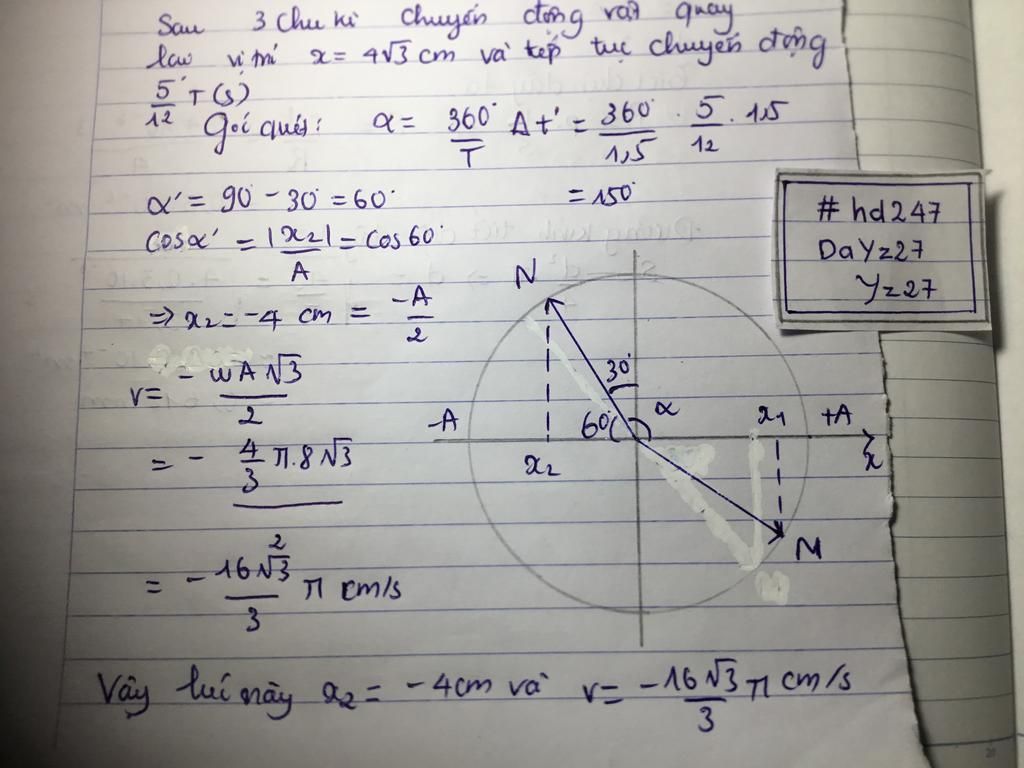 Sau 3 Chu kì chuyển động vật quay
lại vị trí x = 4√3 cm và tiếp tục chuyển động
5/12 T (s)
Góc quét: α = 360°/T Δt' = 360°/1,5 . 5/12 . 1,5
= 150°
α' = 90° - 30° = 60°
cosα' = |x2|/A = cos60°
⇒ x2 = -4 cm = -A/2
v = -ωA√3/2
= - 4/3 π.8√3 / 2
= - 16√3/3 π cm/s
# hd247
DaYz27
Yz27
N
30°
α
60°
-A
x1
+A
x2
x
M
Vậy lúc này x2 = -4cm và v = -16√3/3 π cm/s